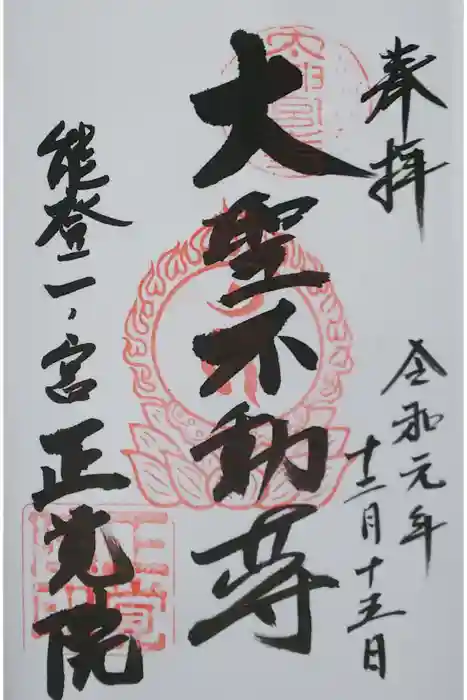 奉拝
令和元年
十二月十五日
大聖不動尊
能登二ノ宮
正覚院